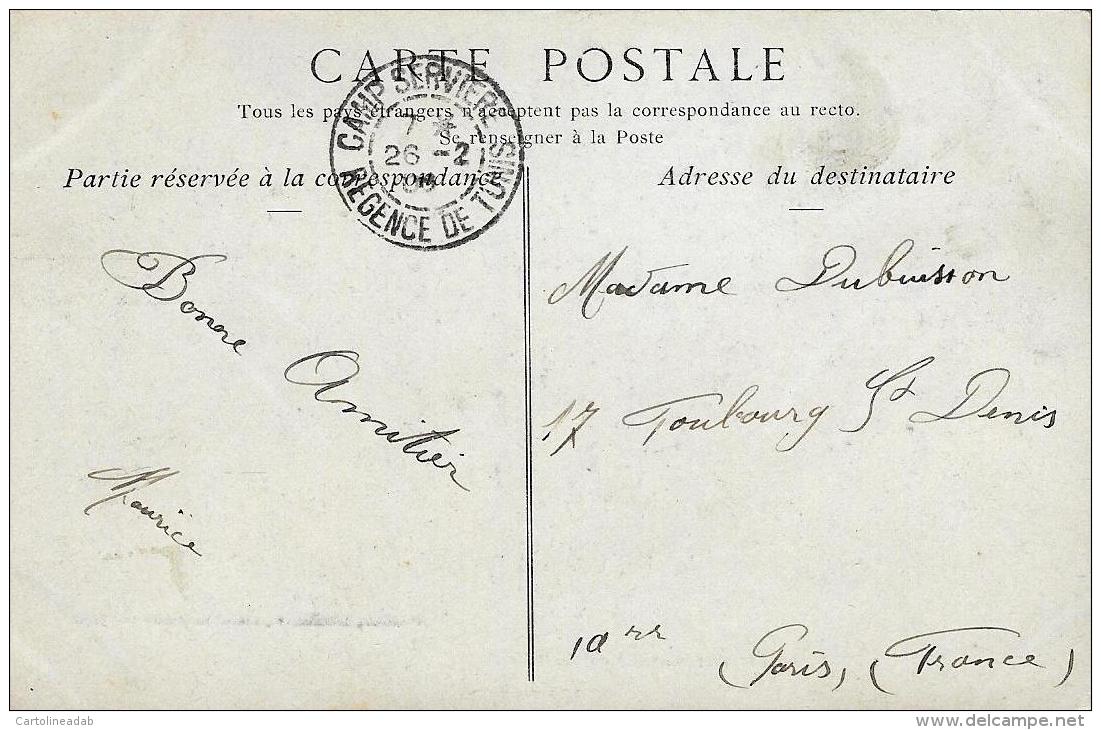 CARTE POSTALE
Tous les pays étrangers n'acceptent pas la correspondance au recto.
Se renseigner à la Poste
CAMP SERVIERE
7
26 -2
RÉGENCE DE TUNIS
Partie réservée à la correspondance
Bonne
Amitier
Maurice
Adresse du destinataire
Madame Dubuisson
17 Foubourg St Denis
Paris, (France)
Cartolineadab
delcampe.net